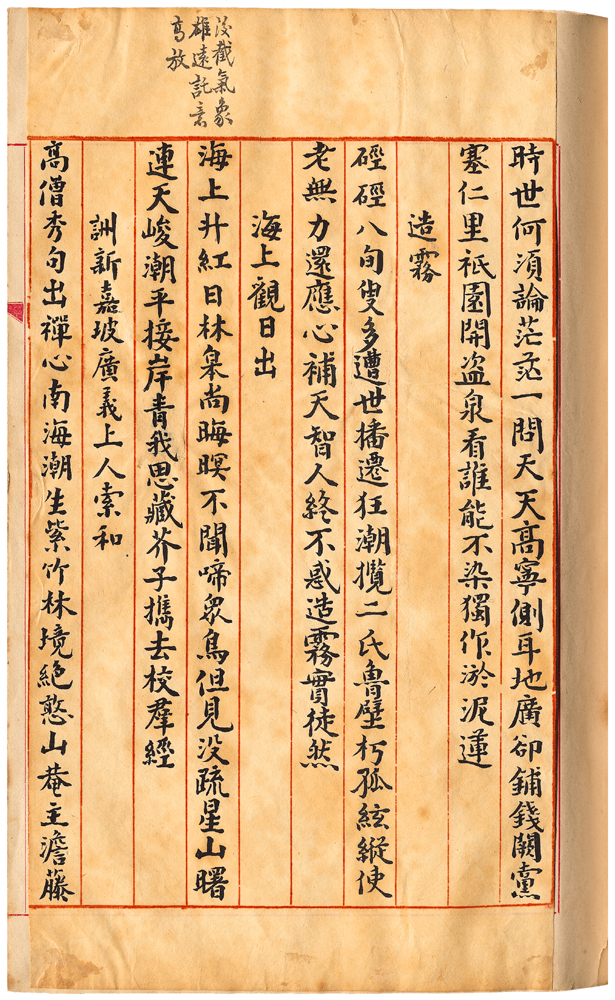 後截氣象
雄遠託意
高放
時世何須論茫茫一問天天高寧側耳地廣卻鋪錢闕黨
塞仁里祇園開盜泉看誰能不染獨作淤泥蓮
造霧
硜硜八旬叟多遭世播遷狂潮攬二氏魯壁朽孤絃縱使
老無力還應心補天智人終不惑造霧實徒然
海上觀日出
海上升紅日林皋尚晦暝不聞啼眾鳥但見没疏星山曙
連天峻潮平接岸青我思藏芥子攜去校羣經
詶新嘉坡廣義上人索和
高僧秀句出禪心南海潮生紫竹林境絕憨山菴主澹藤